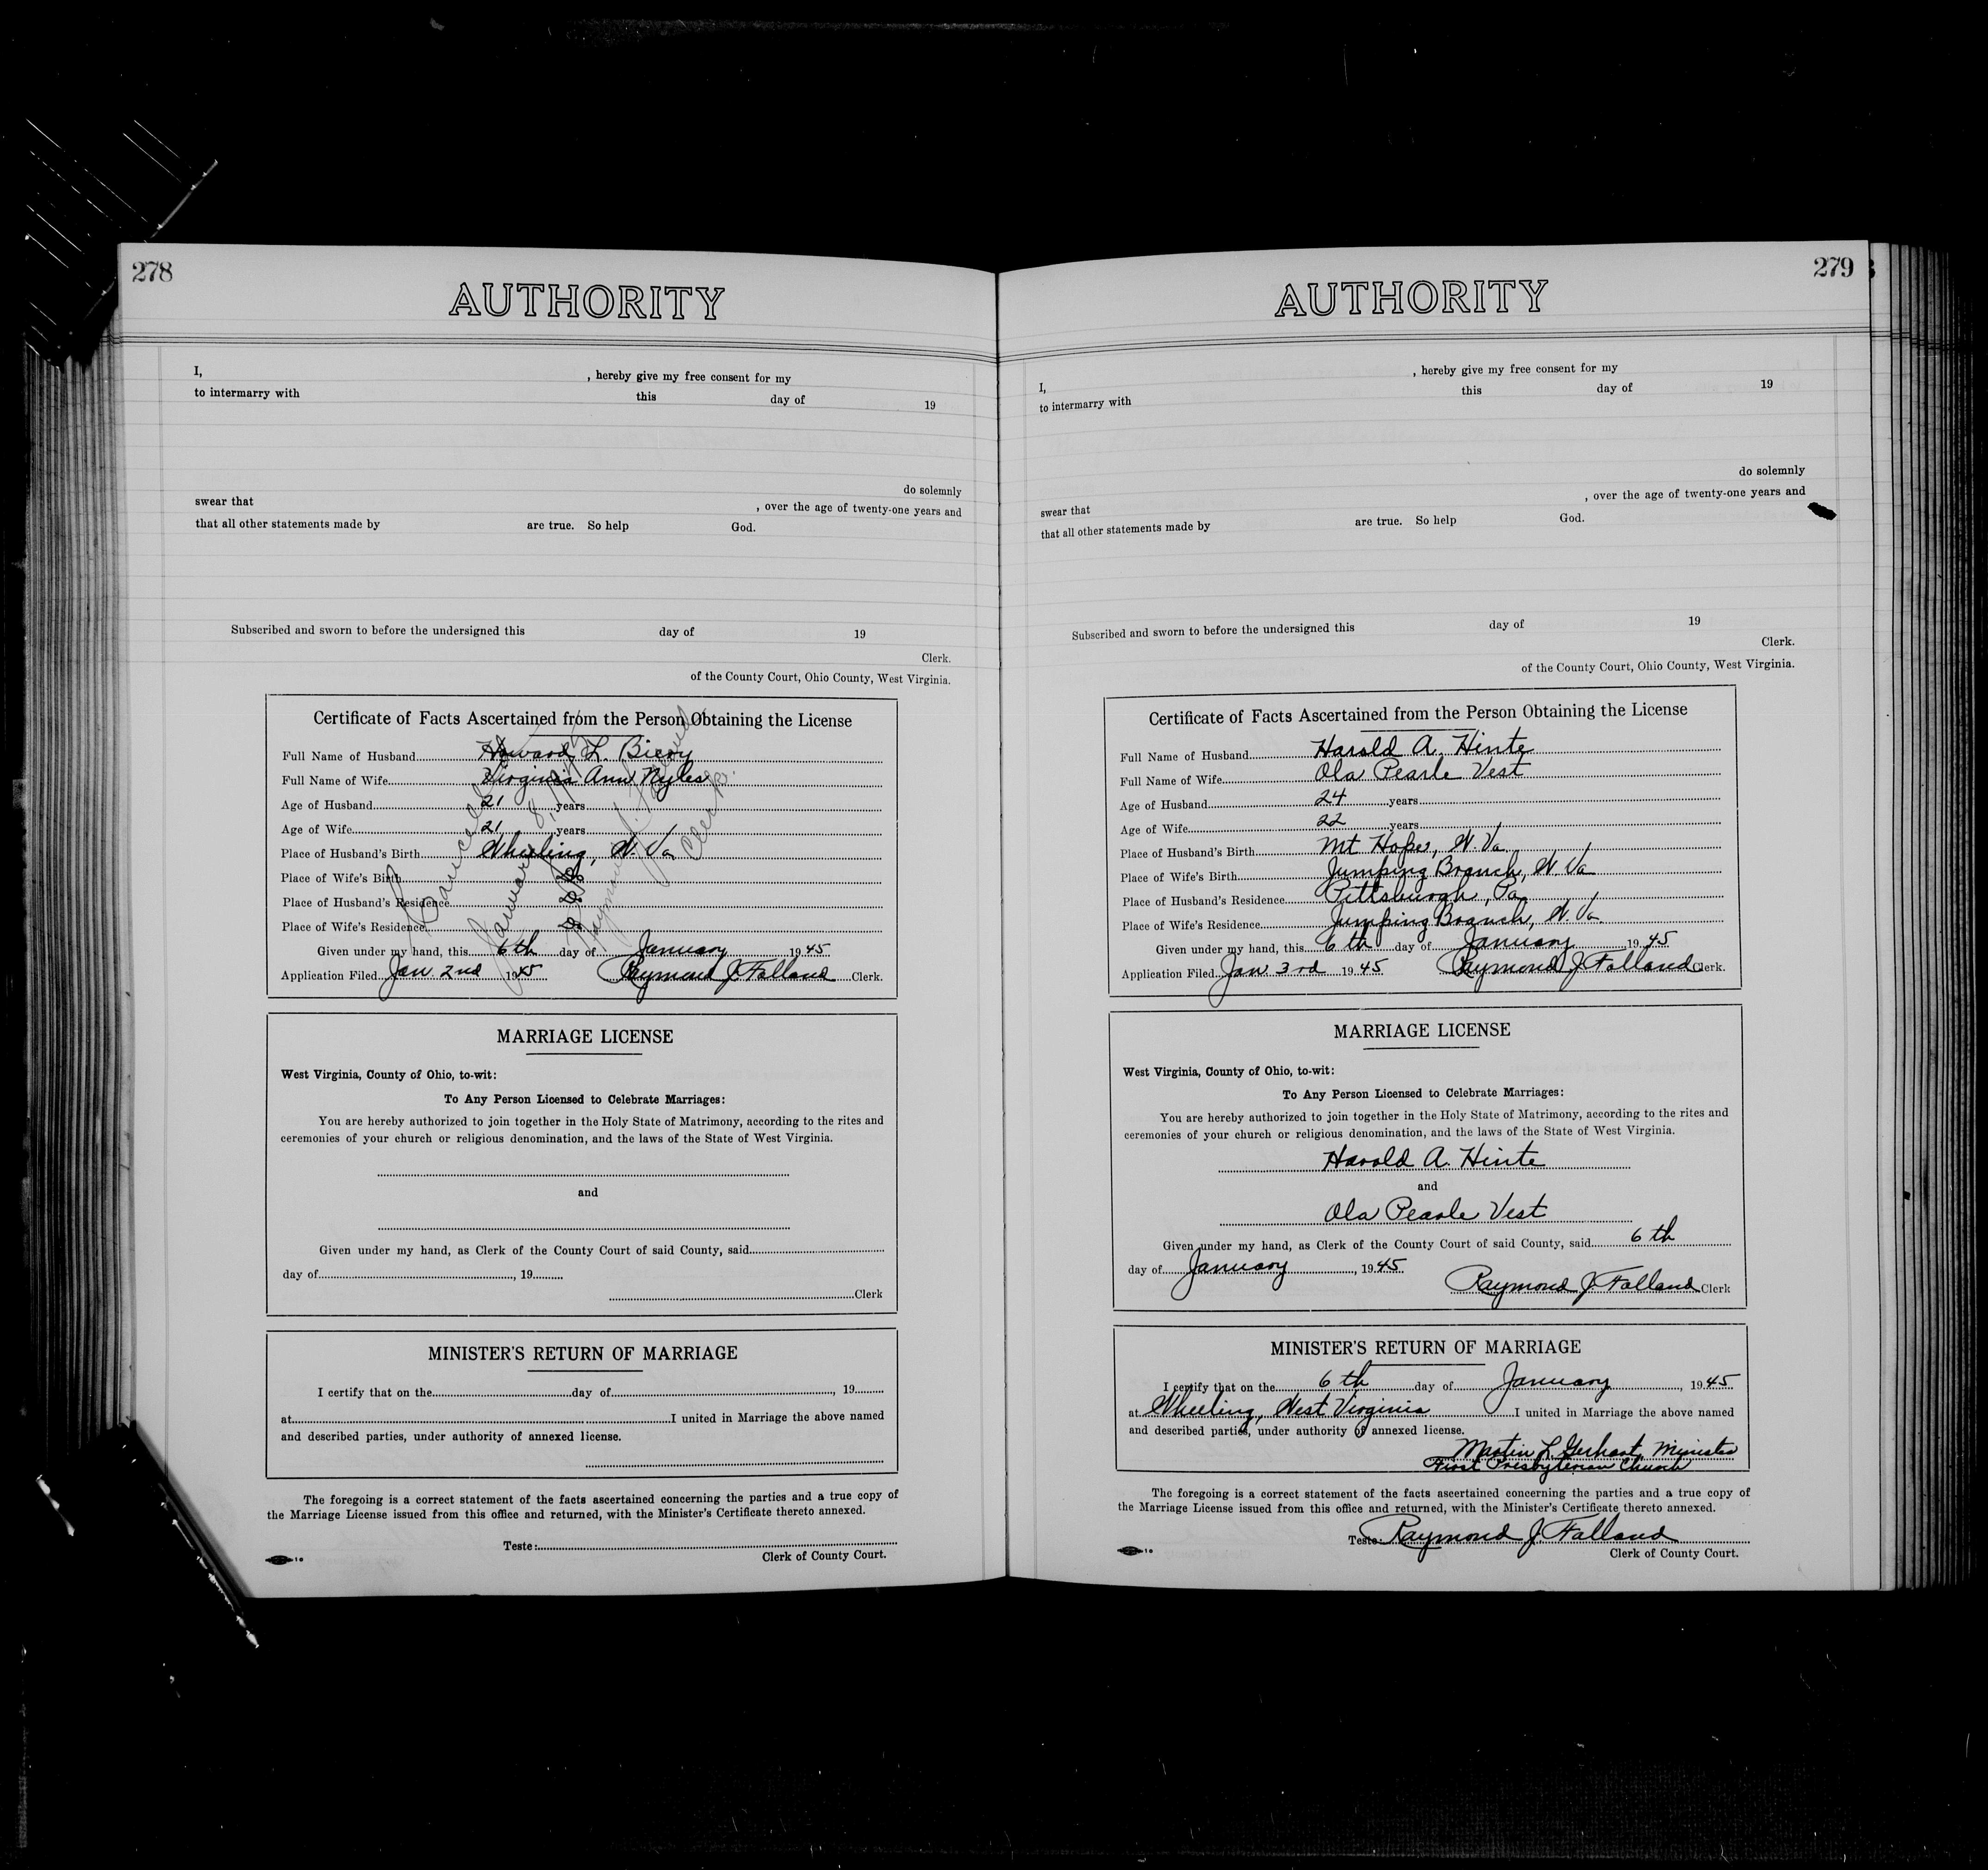 278
AUTHORITY
I, , hereby give my free consent for my
to intermarry with this day of 19
do solemnly
swear that , over the age of twenty-one years and
that all other statements made by are true. So help God.
Subscribed and sworn to before the undersigned this day of 19
Clerk.
of the County Court, Ohio County, West Virginia.
Certificate of Facts Ascertained from the Person Obtaining the License
Full Name of Husband Howard L. Biery
Full Name of Wife Virginia Ann Nyles
Age of Husband 21 years
Age of Wife 21 years
Place of Husband's Birth Wheeling, W. Va
Place of Wife's Birth Do
Place of Husband's Residence Do
Place of Wife's Residence Do
Given under my hand, this 6th day of January 1945
Application Filed Jan 2nd 1945 Raymond J. Falland Clerk.
Cancelled
January 8,
Raymond J. Falland
Clerk
MARRIAGE LICENSE
West Virginia, County of Ohio, to-wit:
To Any Person Licensed to Celebrate Marriages:
You are hereby authorized to join together in the Holy State of Matrimony, according to the rites and
ceremonies of your church or religious denomination, and the laws of the State of West Virginia.
and
Given under my hand, as Clerk of the County Court of said County, said
day of , 19
Clerk
MINISTER'S RETURN OF MARRIAGE
I certify that on the day of , 19
at I united in Marriage the above named
and described parties, under authority of annexed license.
The foregoing is a correct statement of the facts ascertained concerning the parties and a true copy of
the Marriage License issued from this office and returned, with the Minister's Certificate thereto annexed.
Teste:
Clerk of County Court.
279
AUTHORITY
I, , hereby give my free consent for my
to intermarry with this day of 19
do solemnly
swear that , over the age of twenty-one years and
that all other statements made by are true. So help God.
Subscribed and sworn to before the undersigned this day of 19
Clerk.
of the County Court, Ohio County, West Virginia.
Certificate of Facts Ascertained from the Person Obtaining the License
Full Name of Husband Harold A. Hinte
Full Name of Wife Ola Pearle Vest
Age of Husband 24 years
Age of Wife 22 years
Place of Husband's Birth Mt Hope, W. Va
Place of Wife's Birth Jumping Branch, W. Va
Place of Husband's Residence Pittsburgh, Pa
Place of Wife's Residence Jumping Branch, W. Va
Given under my hand, this 6th day of January 1945
Application Filed Jan 3rd 1945 Raymond J. Falland Clerk.
MARRIAGE LICENSE
West Virginia, County of Ohio, to-wit:
To Any Person Licensed to Celebrate Marriages:
You are hereby authorized to join together in the Holy State of Matrimony, according to the rites and
ceremonies of your church or religious denomination, and the laws of the State of West Virginia.
Harold A. Hinte
and
Ola Pearle Vest
Given under my hand, as Clerk of the County Court of said County, said 6th
day of January , 1945
Raymond J. Falland Clerk
MINISTER'S RETURN OF MARRIAGE
I certify that on the 6th day of January , 1945
at Wheeling, West Virginia I united in Marriage the above named
and described parties, under authority of annexed license.
Martin L. Gerhart, Minister
First Presbyterian Church
The foregoing is a correct statement of the facts ascertained concerning the parties and a true copy of
the Marriage License issued from this office and returned, with the Minister's Certificate thereto annexed.
Teste: Raymond J. Falland
Clerk of County Court.